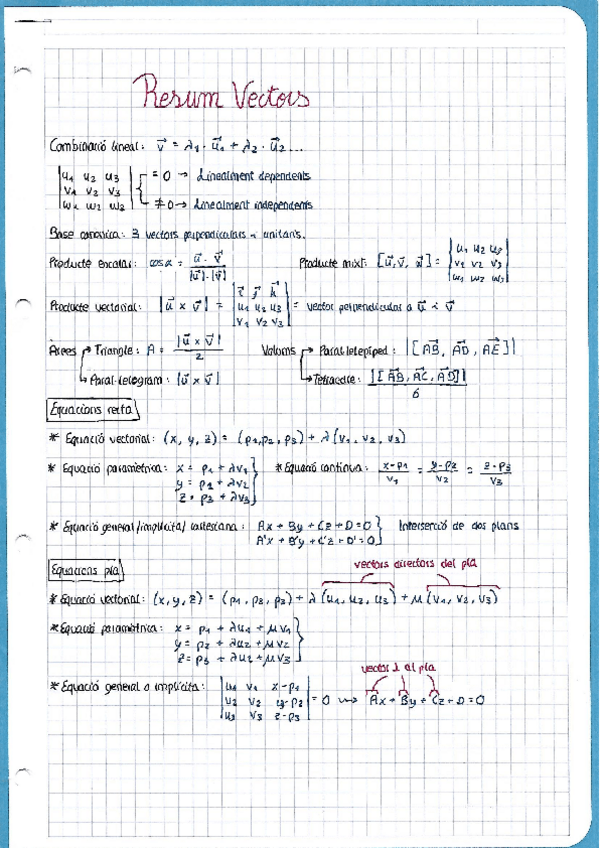 Resum Vectors
Combinació lineal: v⃗ = λ₁ · u⃗₁ + λ₂ · u⃗₂ ...
| u₁ u₂ u₃ | = 0 → Linealment dependents
| v₁ v₂ v₃ |
| w₁ w₂ w₃ | ≠ 0 → Linealment independents
Base canònica: 3 vectors perpendiculars i unitaris.
Producte escalar: cos α = u⃗ · v⃗ / |u⃗| · |v⃗| Producte mixt: [u⃗, v⃗, w⃗] = | u₁ u₂ u₃ |
| v₁ v₂ v₃ |
| w₁ w₂ w₃ |
Producte vectorial: |u⃗ x v⃗| = | i⃗ j⃗ k⃗ |
| u₁ u₂ u₃ | = vector perpendicular a u⃗ i v⃗
| v₁ v₂ v₃ |
Àrees → Triangle: A = |u⃗ x v⃗| / 2 Volums → Paral·lelepíped: |[AB⃗, AD⃗, AE⃗]|
→ Paral·lelogram: |u⃗ x v⃗| → Tetraedre: |[AB⃗, AC⃗, AD⃗]| / 6
Equacions recta
* Equació vectorial: (x, y, z) = (p₁, p₂, p₃) + λ (v₁, v₂, v₃)
* Equació paramètrica: x = p₁ + λv₁ * Equació contínua: x-p₁ / v₁ = y-p₂ / v₂ = z-p₃ / v₃
y = p₂ + λv₂
z = p₃ + λv₃
* Equació general/implícita/cartesiana: Ax + By + Cz + D = 0 } Intersecció de dos plans
A'x + B'y + C'z + D' = 0
Equacions pla
vectors directors del pla
* Equació vectorial: (x, y, z) = (p₁, p₂, p₃) + λ (u₁, u₂, u₃) + μ (v₁, v₂, v₃)
* Equació paramètrica: x = p₁ + λu₁ + μv₁
y = p₂ + λu₂ + μv₂
z = p₃ + λu₂ + μv₃
vector ⊥ al pla
* Equació general o implícita: | u₁ v₁ x-p₁ |
| u₂ v₂ y-p₂ | = 0 → Ax + By + Cz + D = 0
| u₃ v₃ z-p₃ |